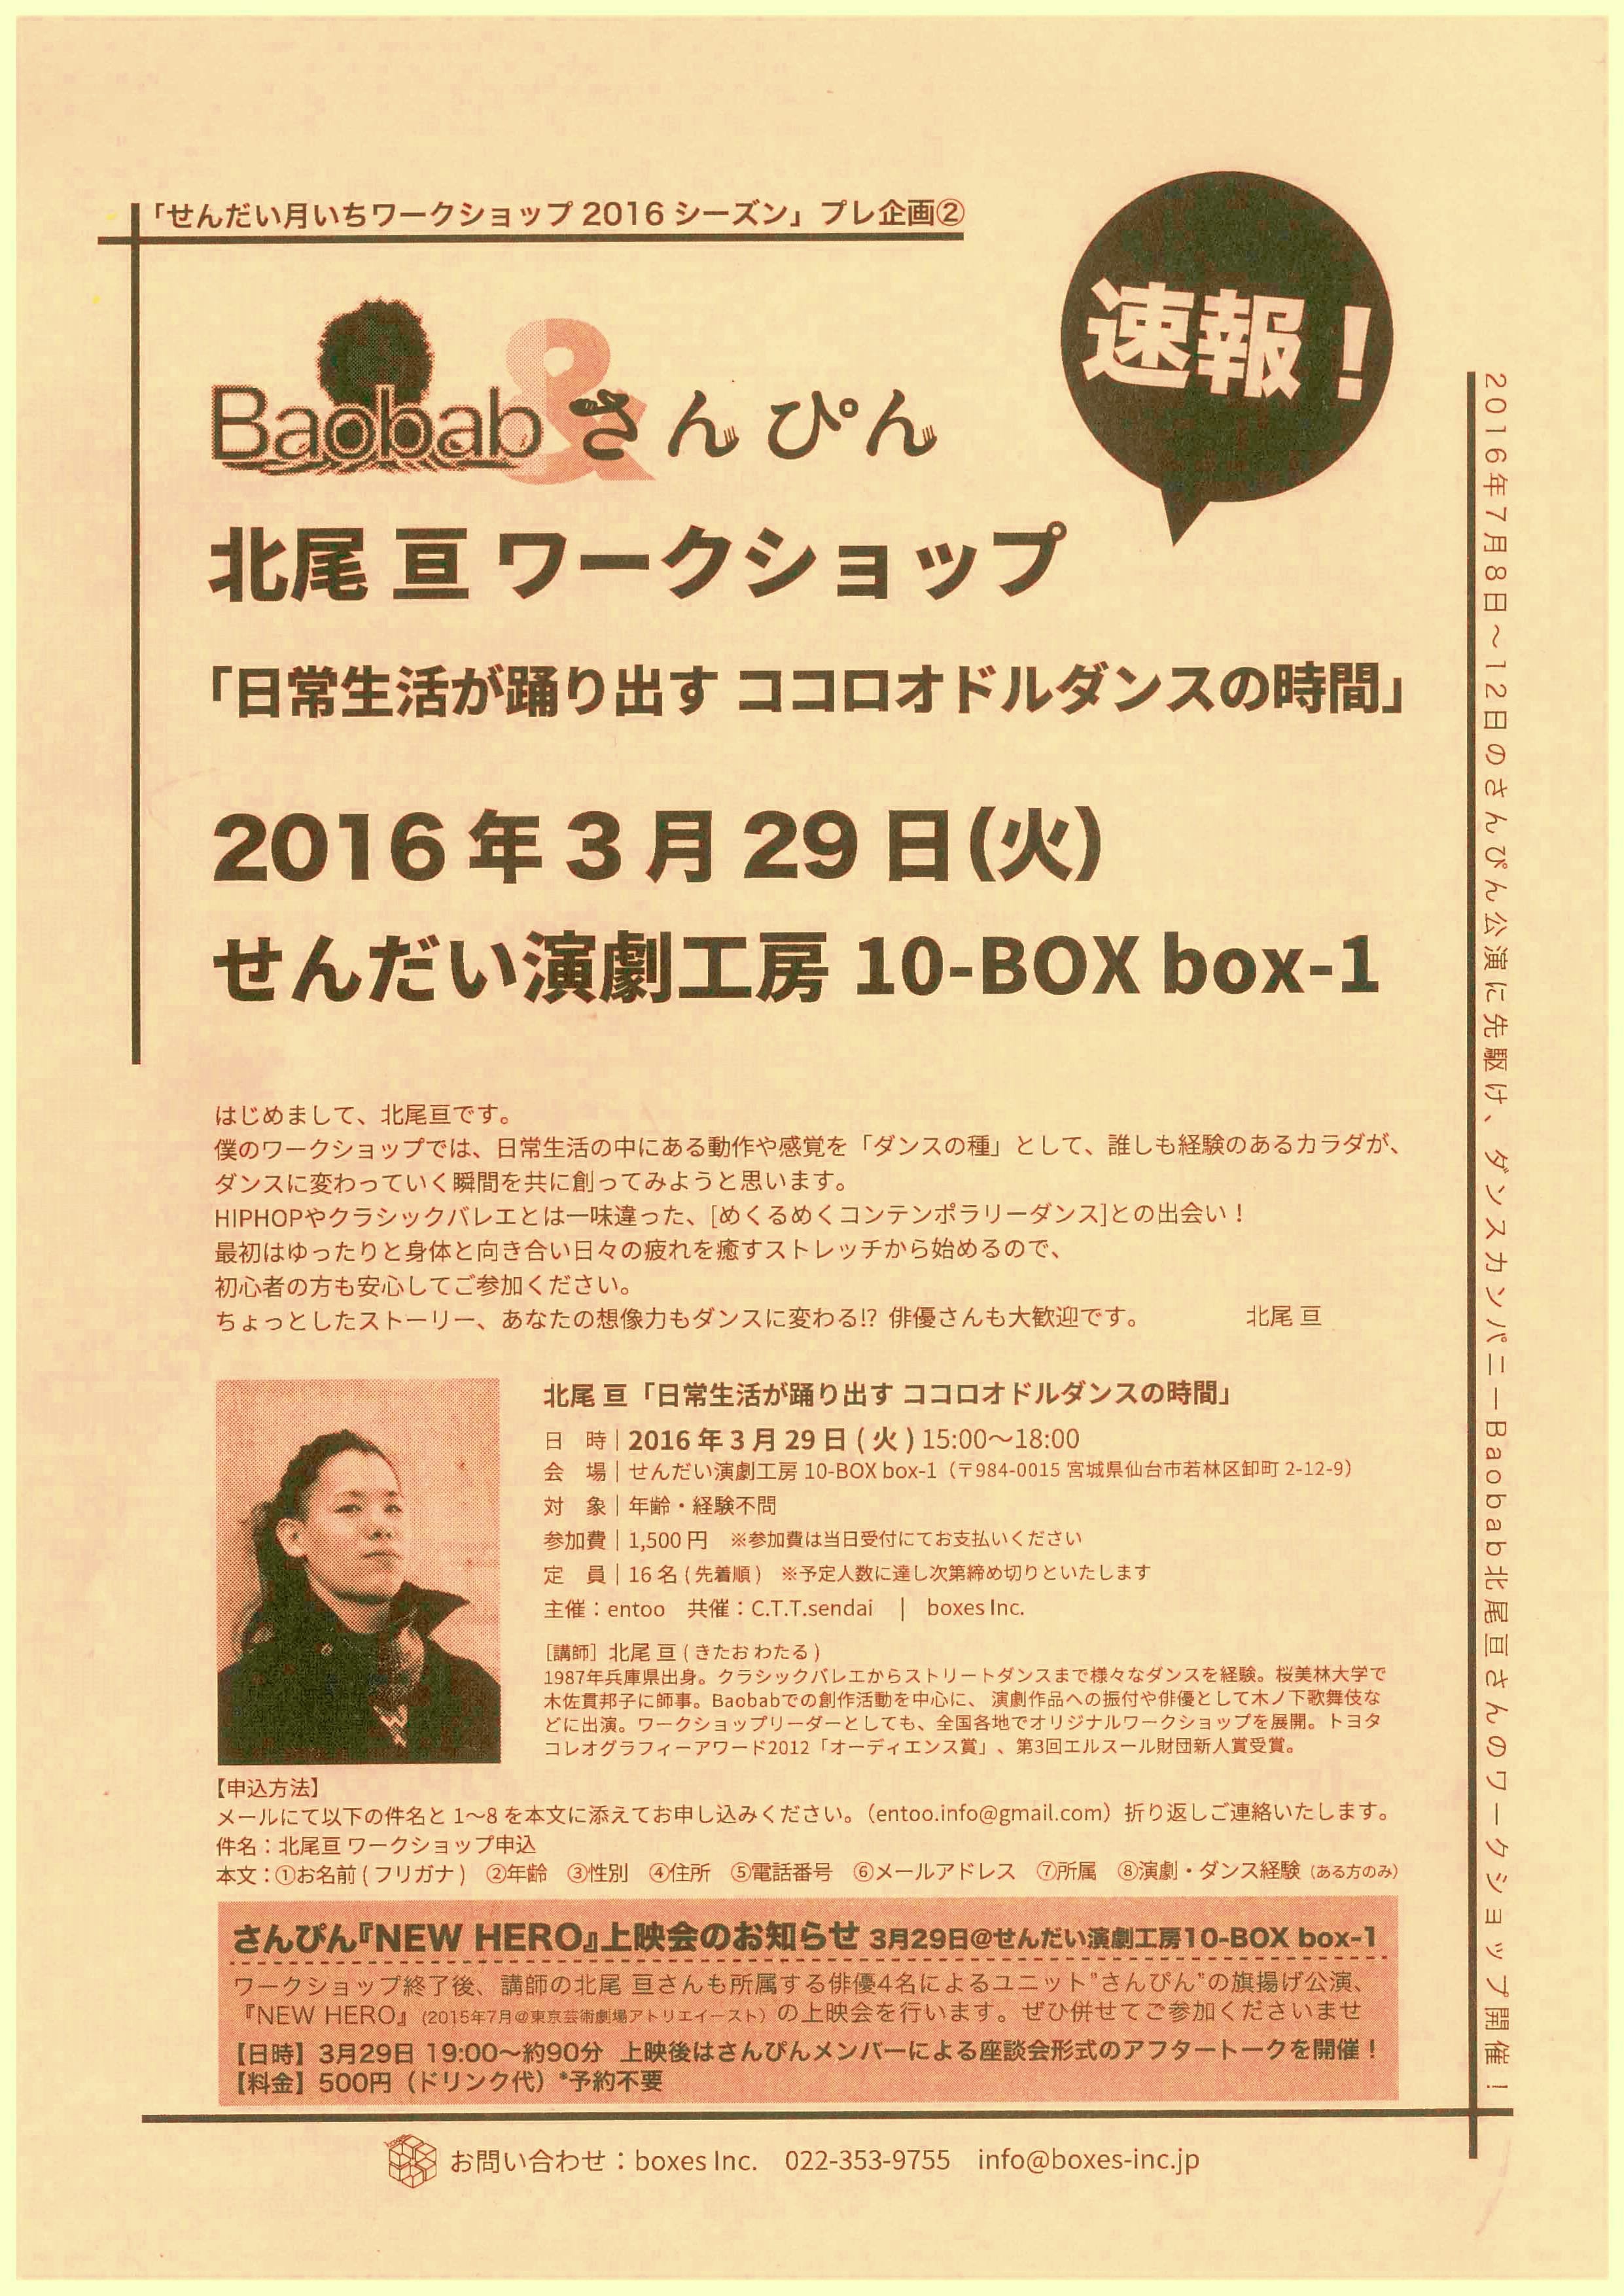 「せんだい月いちワークショップ 2016 シーズン」プレ企画②
速報！
Baobab & さんぴん
北尾 亘 ワークショップ
「日常生活が踊り出す ココロオドルダンスの時間」
2016 年 3 月 29 日（火）
せんだい演劇工房 10-BOX box-1
2016年7月8日～12日のさんぴん公演に先駆け、ダンスカンパニーBaobab北尾亘さんのワークショップ開催！
はじめまして、北尾亘です。
僕のワークショップでは、日常生活の中にある動作や感覚を「ダンスの種」として、誰しも経験のあるカラダが、
ダンスに変わっていく瞬間を共に創ってみようと思います。
HIPHOPやクラシックバレエとは一味違った、[めくるめくコンテンポラリーダンス]との出会い！
最初はゆったりと身体と向き合い日々の疲れを癒すストレッチから始めるので、
初心者の方も安心してご参加ください。
ちょっとしたストーリー、あなたの想像力もダンスに変わる!? 俳優さんも大歓迎です。 北尾 亘
北尾 亘「日常生活が踊り出す ココロオドルダンスの時間」
日　時｜2016 年 3 月 29 日 ( 火 ) 15:00～18:00
会　場｜せんだい演劇工房 10-BOX box-1（〒984-0015 宮城県仙台市若林区卸町 2-12-9）
対　象｜年齢・経験不問
参加費｜1,500 円　※参加費は当日受付にてお支払いください
定　員｜16 名 ( 先着順 )　※予定人数に達し次第締め切りといたします
主催：entoo　共催：C.T.T.sendai　｜　boxes Inc.
［講師］北尾 亘 ( きたお わたる )
1987年兵庫県出身。クラシックバレエからストリートダンスまで様々なダンスを経験。桜美林大学で
木佐貫邦子に師事。Baobabでの創作活動を中心に、 演劇作品への振付や俳優として木ノ下歌舞伎な
どに出演。ワークショップリーダーとしても、全国各地でオリジナルワークショップを展開。トヨタ
コレオグラフィーアワード2012「オーディエンス賞」、第3回エルスール財団新人賞受賞。
【申込方法】
メールにて以下の件名と 1～8 を本文に添えてお申し込みください。（entoo.info@gmail.com）折り返しご連絡いたします。
件名：北尾亘 ワークショップ申込
本文：①お名前 ( フリガナ )　②年齢　③性別　④住所　⑤電話番号　⑥メールアドレス　⑦所属　⑧演劇・ダンス経験（ある方のみ）
さんぴん『NEW HERO』上映会のお知らせ 3月29日@せんだい演劇工房10-BOX box-1
ワークショップ終了後、講師の北尾 亘さんも所属する俳優4名によるユニット"さんぴん"の旗揚げ公演、
『NEW HERO』（2015年7月@東京芸術劇場アトリエイースト）の上映会を行います。ぜひ併せてご参加くださいませ
【日時】3月29日 19:00～約90分　上映後はさんぴんメンバーによる座談会形式のアフタートークを開催！
【料金】500円（ドリンク代）*予約不要
お問い合わせ：boxes Inc.　022-353-9755　info@boxes-inc.jp